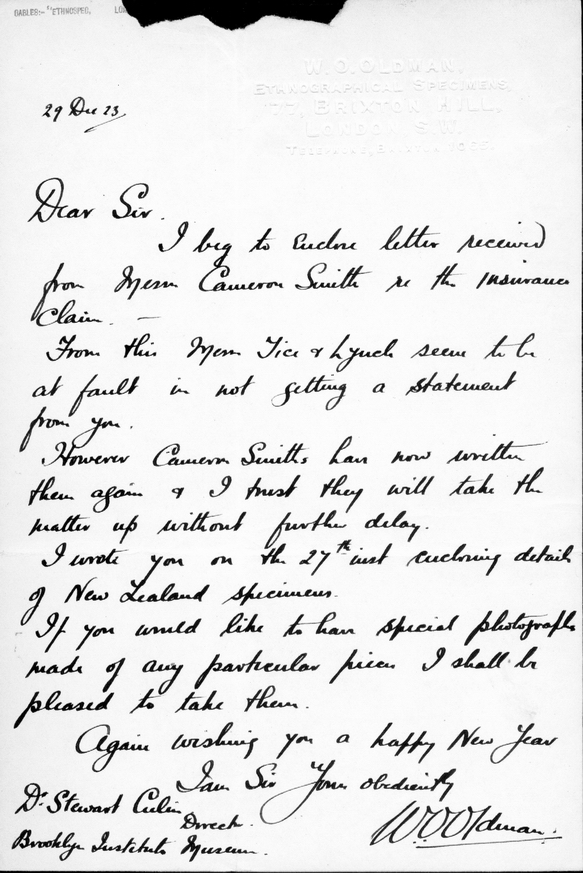 CABLES:- "ETHNOSPEC, LO
W.O. OLDMAN,
ETHNOGRAPHICAL SPECIMENS,
77, BRIXTON HILL,
LONDON S.W.
TELEPHONE, BRIXTON 1065.
29 Dec 23
Dear Sir.
I beg to Enclose letter received
from Messrs Cameron Smith re the Insurance
Claim. —
From this Messrs Tice & Lynch seem to be
at fault in not getting a statement
from you.
However Cameron Smiths have now written
them again & I trust they will take the
matter up without further delay.
I wrote you on the 27th inst enclosing details
of New Zealand specimens.
If you would like to have special photographs
made of any particular pieces I shall be
pleased to take them.
Again wishing you a happy New Year
I am Sir Yours obediently
W.O. Oldman.
Dr Stewart Culin
Direct.
Brooklyn Institute Museum.